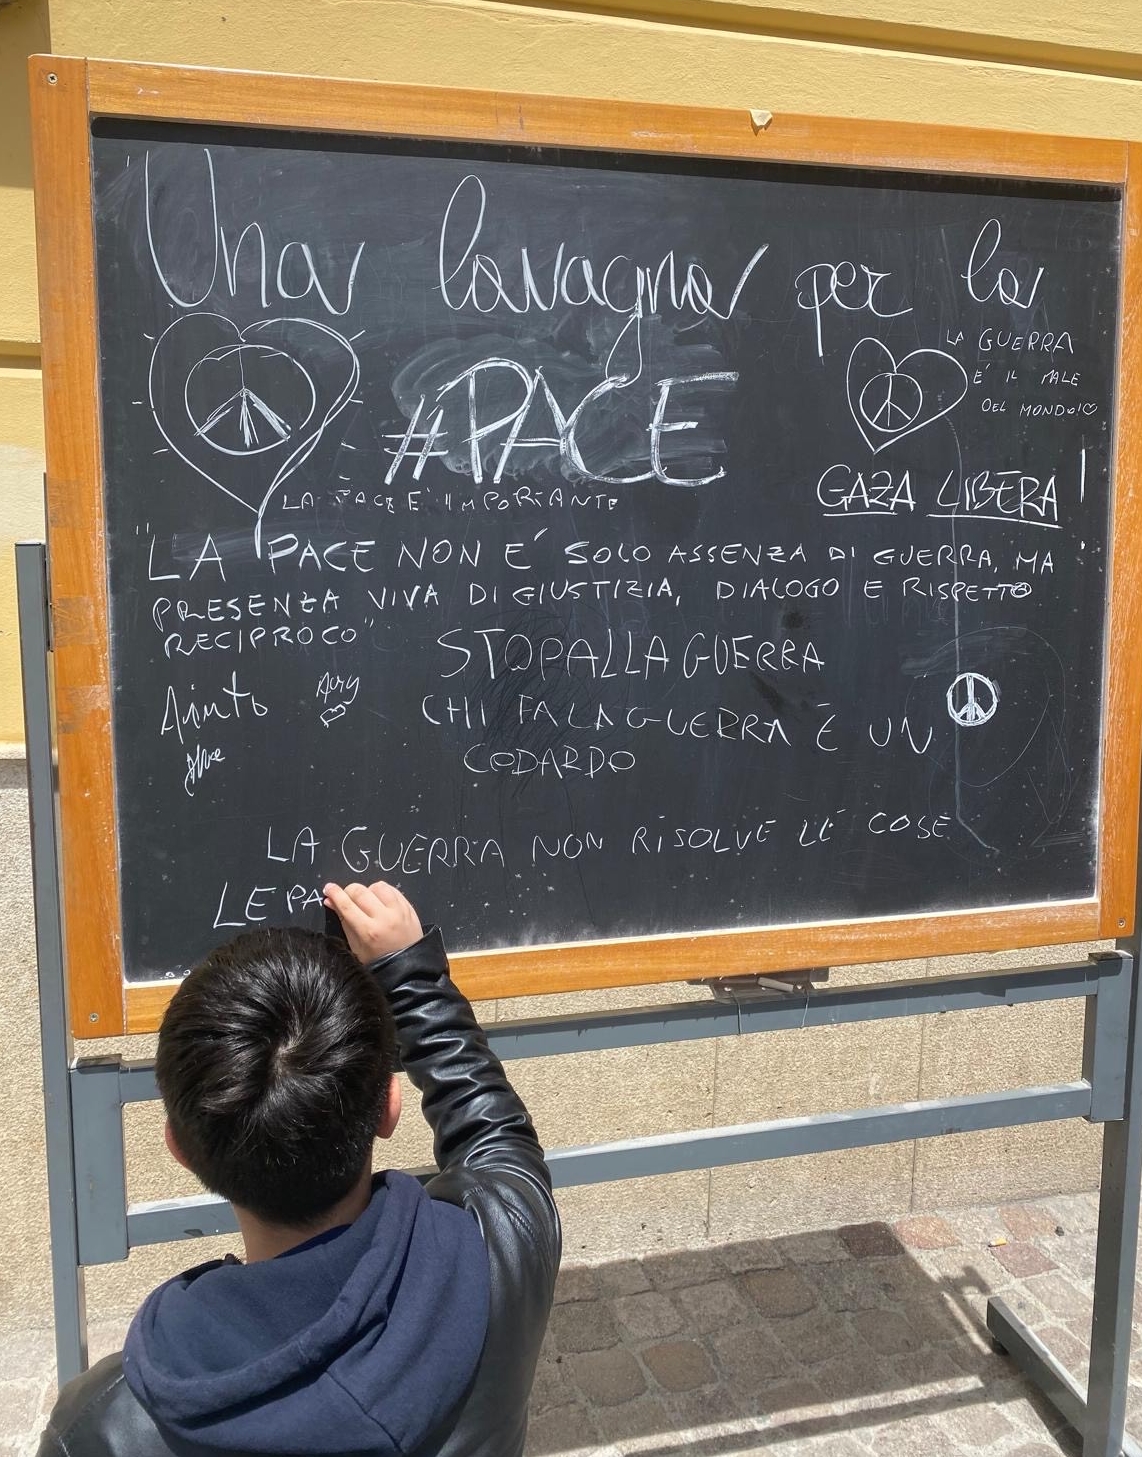 "Una lavagna per la
#PACE
LA GUERRA
E' IL MALE
DEL MONDO!
LA PACE E' IMPORTANTE
GAZA LIBERA!
"LA PACE NON E' SOLO ASSENZA DI GUERRA, MA
PRESENZA VIVA DI GIUSTIZIA, DIALOGO E RISPETTO
RECIPROCO"
STOP ALLA GUERRA
Aiuto
CHI FA LA GUERRA È UN
CODARDO
LA GUERRA NON RISOLVE LE COSE
LE PA